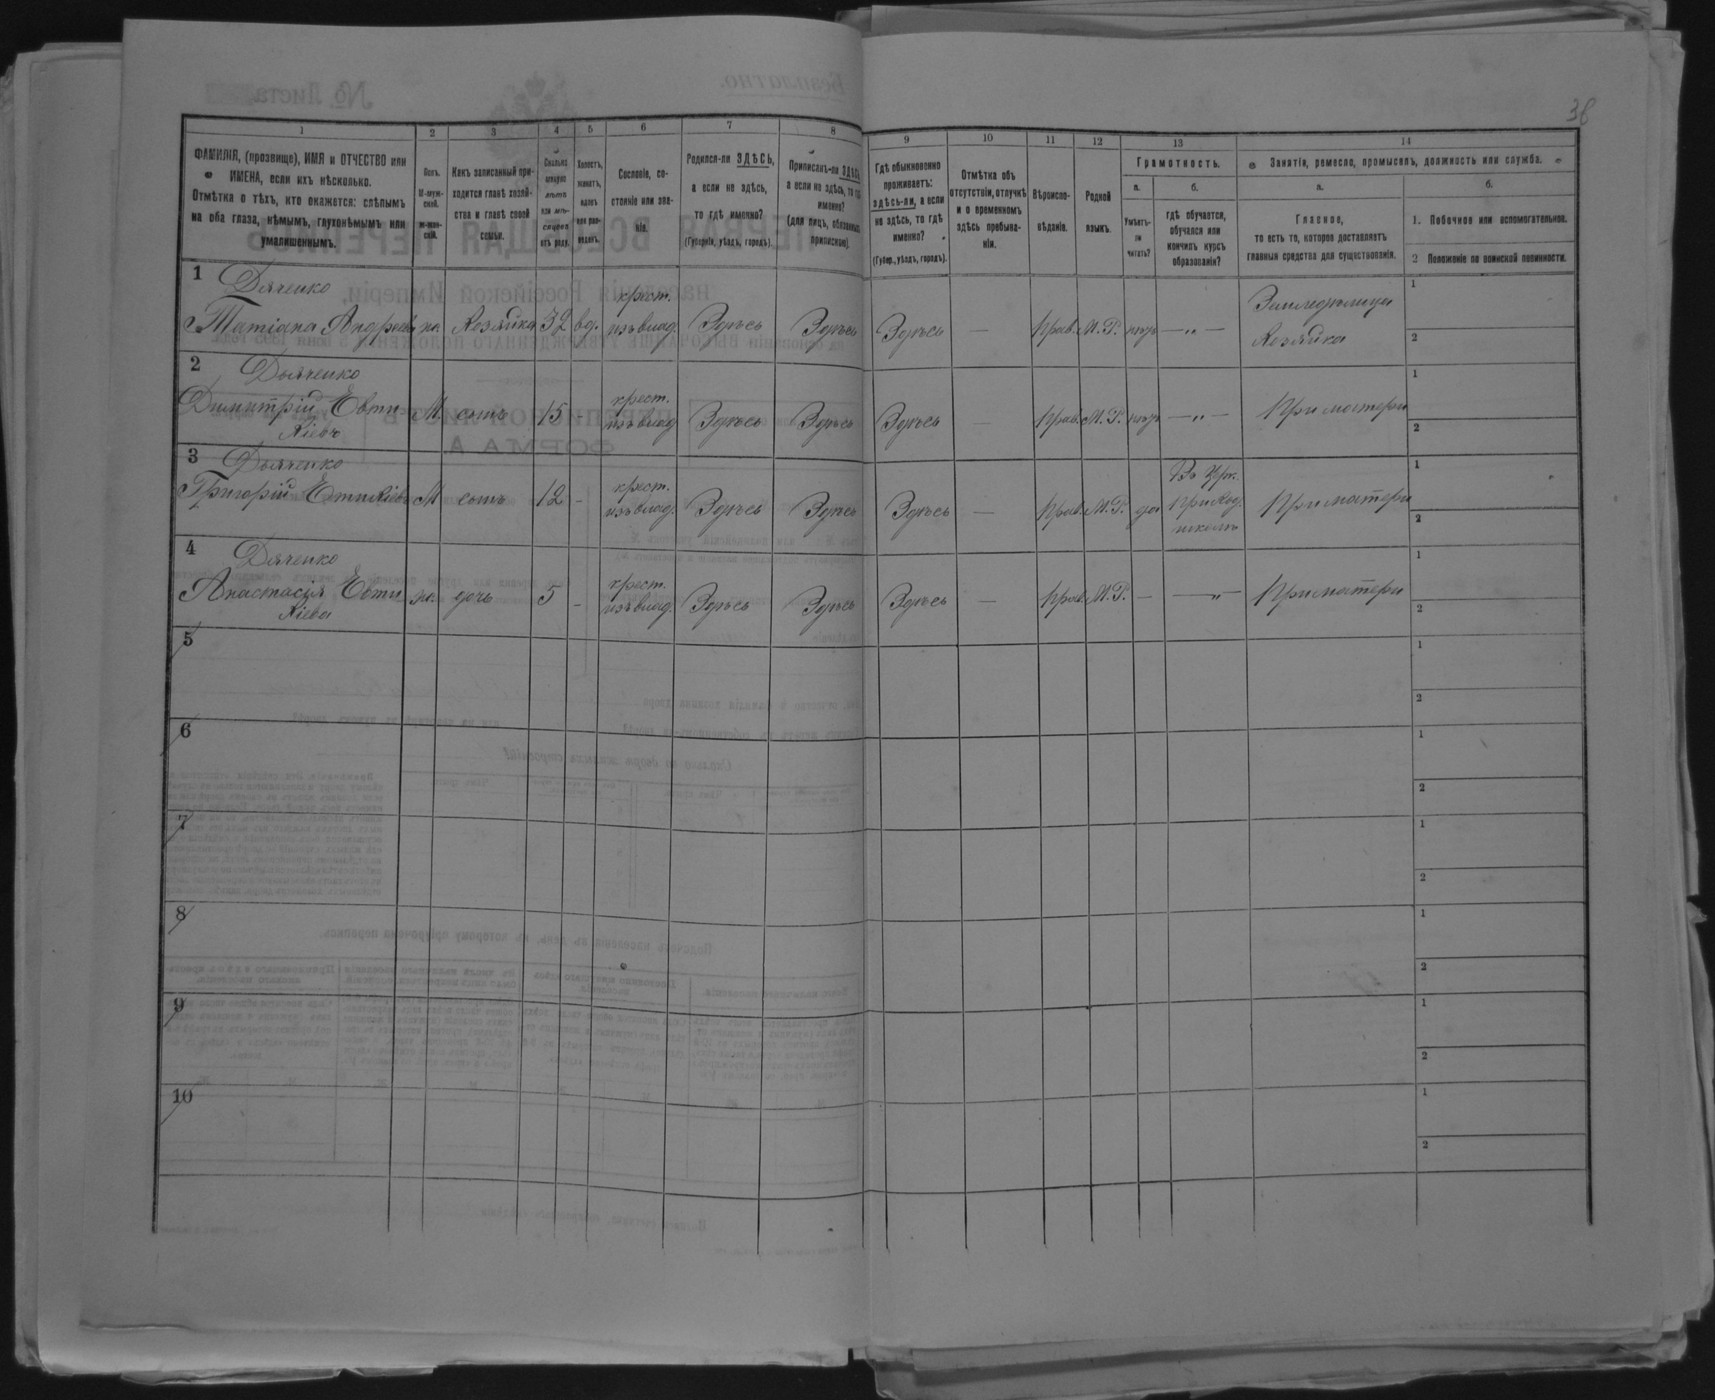 38
1
2
3
4
5
6
7
8
9
10
11
12
13
14
ФАМИЛІЯ, (прозвище), ИМЯ и ОТЧЕСТВО или
ИМЕНА, если ихъ нѣсколько.
Отмѣтка о тѣхъ, кто окажется: слѣпымъ
на оба глаза, нѣмымъ, глухонѣмымъ или
умалишеннымъ.
Полъ.
М-муж-
ской.
ж-жен-
скій.
Какъ записанный при-
ходится главѣ хозяй-
ства и главѣ своей
семьи.
Сколько
минуло
лѣтъ
или мѣ-
сяцевъ
отъ роду.
Холостъ,
женатъ,
вдовъ
или раз-
веденъ.
Сословіе, со-
стояніе или зва-
ніе.
Родился-ли ЗДѢСЬ,
а если не здѣсь,
то гдѣ именно?
(Губернія, уѣздъ, городъ).
Приписанъ-ли ЗДѢСЬ,
а если не здѣсь, то гдѣ
именно?
(для лицъ, обязанныхъ
припискою).
Гдѣ обыкновенно
проживаетъ:
здѣсь-ли, а если
не здѣсь, то гдѣ
именно?
(Губер., уѣздъ, городъ).
Отмѣтка объ
отсутствіи, отлучкѣ
и о временномъ
здѣсь пребыва-
ніи.
Вѣроиспо-
вѣданіе.
Родной
языкъ.
Грамотность.
а.
Умѣетъ-
ли
читать?
б.
гдѣ обучается,
обучался или
кончилъ курсъ
образованія?
Занятіе, ремесло, промыселъ, должность или служба.
а.
Главное,
то есть то, которое доставляетъ
главныя средства для существованія.
б.
1. Побочное или вспомогательное.
2 Положеніе по воинской повинности.
1
Дяченко
Татіана Андреева ж. Хозяйка 32 вд. крест. изъ влад. Здѣсь Здѣсь Здѣсь — Прав. М.Р. нѣтъ —„— Земледѣлица
Хозяйка
1
2
2
Дьяченко
Димитрій Евти
хіевъ М сынъ 15 - крест. изъ влад. Здѣсь Здѣсь Здѣсь — Прав. М.Р. нѣтъ —„— При матери
1
2
3
Дьяченко
Григорій Евтихіевъ М сынъ 12 - крест. изъ влад. Здѣсь Здѣсь Здѣсь — Прав. М.Р. да Въ Црк.
приход.
школѣ При матери
1
2
4
Дяченко
Анастасія Евти
хіева ж. дочь 5 - крест. изъ влад. Здѣсь Здѣсь Здѣсь — Прав. М.Р. — —„— При матери
1
2
5
1
2
6
1
2
7
1
2
8
1
2
9
1
2
10
1
2